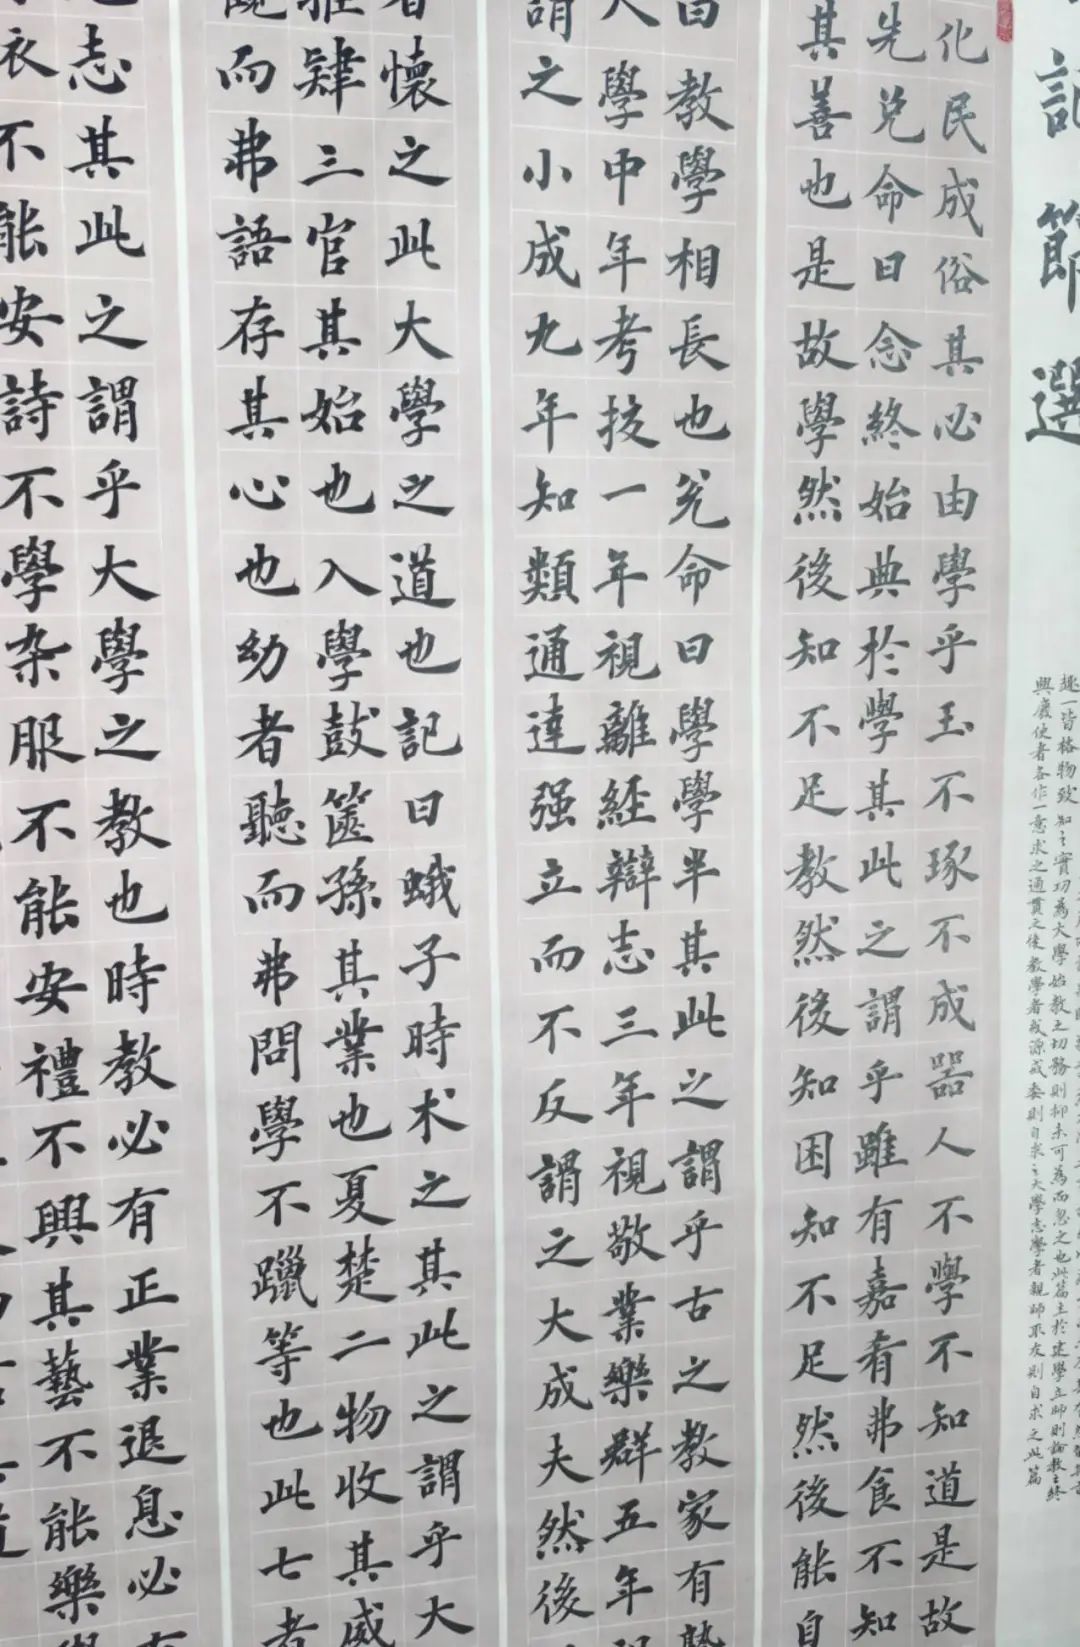 記節選
趣一皆格物致知之實功為大學始教之切務則抑未可為而忽之也此篇主於建學立師則論教之終
興廢使者各作一意求之通貫之後教學者或源或委則自求之大學志學者親師取友則自求之此篇
化民成俗其必由學乎玉不琢不成器人不學不知道是故
先兌命曰念終始典於學其此之謂乎雖有嘉肴弗食不知
其善也是故學然後知不足教然後知困知不足然後能自
曰教學相長也兌命曰學學半其此之謂乎古之教家有塾
大學中年考技一年視離經辯志三年視敬業樂群五年視
謂之小成九年知類通達强立而不反謂之大成夫然後
者懷之此大學之道也記曰蛾子時术之其此之謂乎大
雅肄三官其始也入學鼓篋孫其業也夏楚二物收其威
而弗語存其心也幼者聽而弗問學不躐等也此七者
志其此之謂乎大學之教也時教必有正業退息必有
衣不能安詩不學杂服不能安禮不興其藝不能樂學